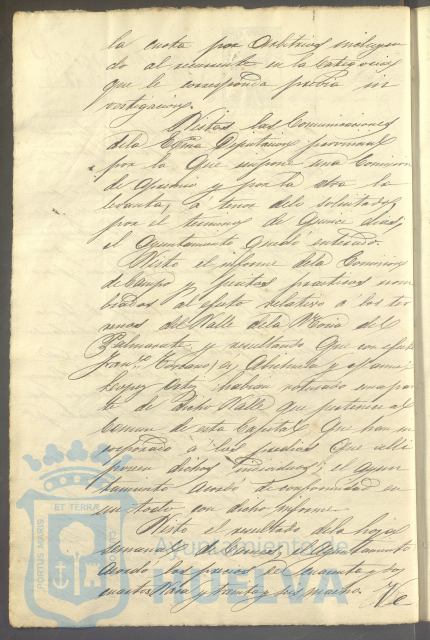 la cuota por Arbitrios incluyen
do al recurrente en la categoria
que le corresponda previa in
vestigacion.
Vistas las Comunicaciones
dela Exma Diputacion provincial
por la que impone una Comision
de apremio y por la otra la
levanta, á tenor delo solicitado,
por el termino de quince dias;
el Ayuntamiento quedó enterado.
Visto el informe dela Comision
de Campo y peritos practicos nom
brados al efecto relativo á los ter
renos del Valle dela Noria del
Palmarete y resultando que con efecto
Franco.
Lopez habian roturado una par
te de dicho Valle que pertenece al
comun de esta Capital que han in
corporado á los predios que alli
poseen dichos individuos; el ayun
tamiento acordó de conformidad en
un todo con dicho informe.
Visto el resultado dela hoja
semanal de el Ayuntamiento
acordó los precios de cincuenta y dos
cuartos y treinta y seis macho. Ve
PORTUS MARIS ET TERRÆ
Ayuntamiento de
HUELVA